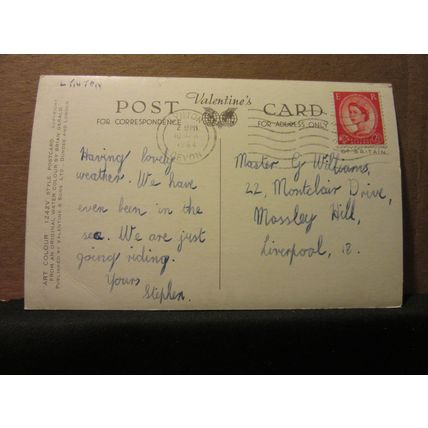 LYNTON
POST Valentine's CARD
FOR CORRESPONDENCE FOR ADDRESS ONLY
DEVON
E R
OF BRITAIN.
Having lovely
weather. We have
even been in the
sea. We are just
going riding.
Yours
Stephen.
Master G Williams,
22, Montclair Drive,
Mossley Hill,
Liverpool, 18.
"ART COLOUR" 1Z42V. STYLE POSTCARD.
FROM AN ORIGINAL WATER COLOUR BY BRIAN GERALD
PUBLISHED BY VALENTINE & SONS LTD., DUNDEE AND LONDON